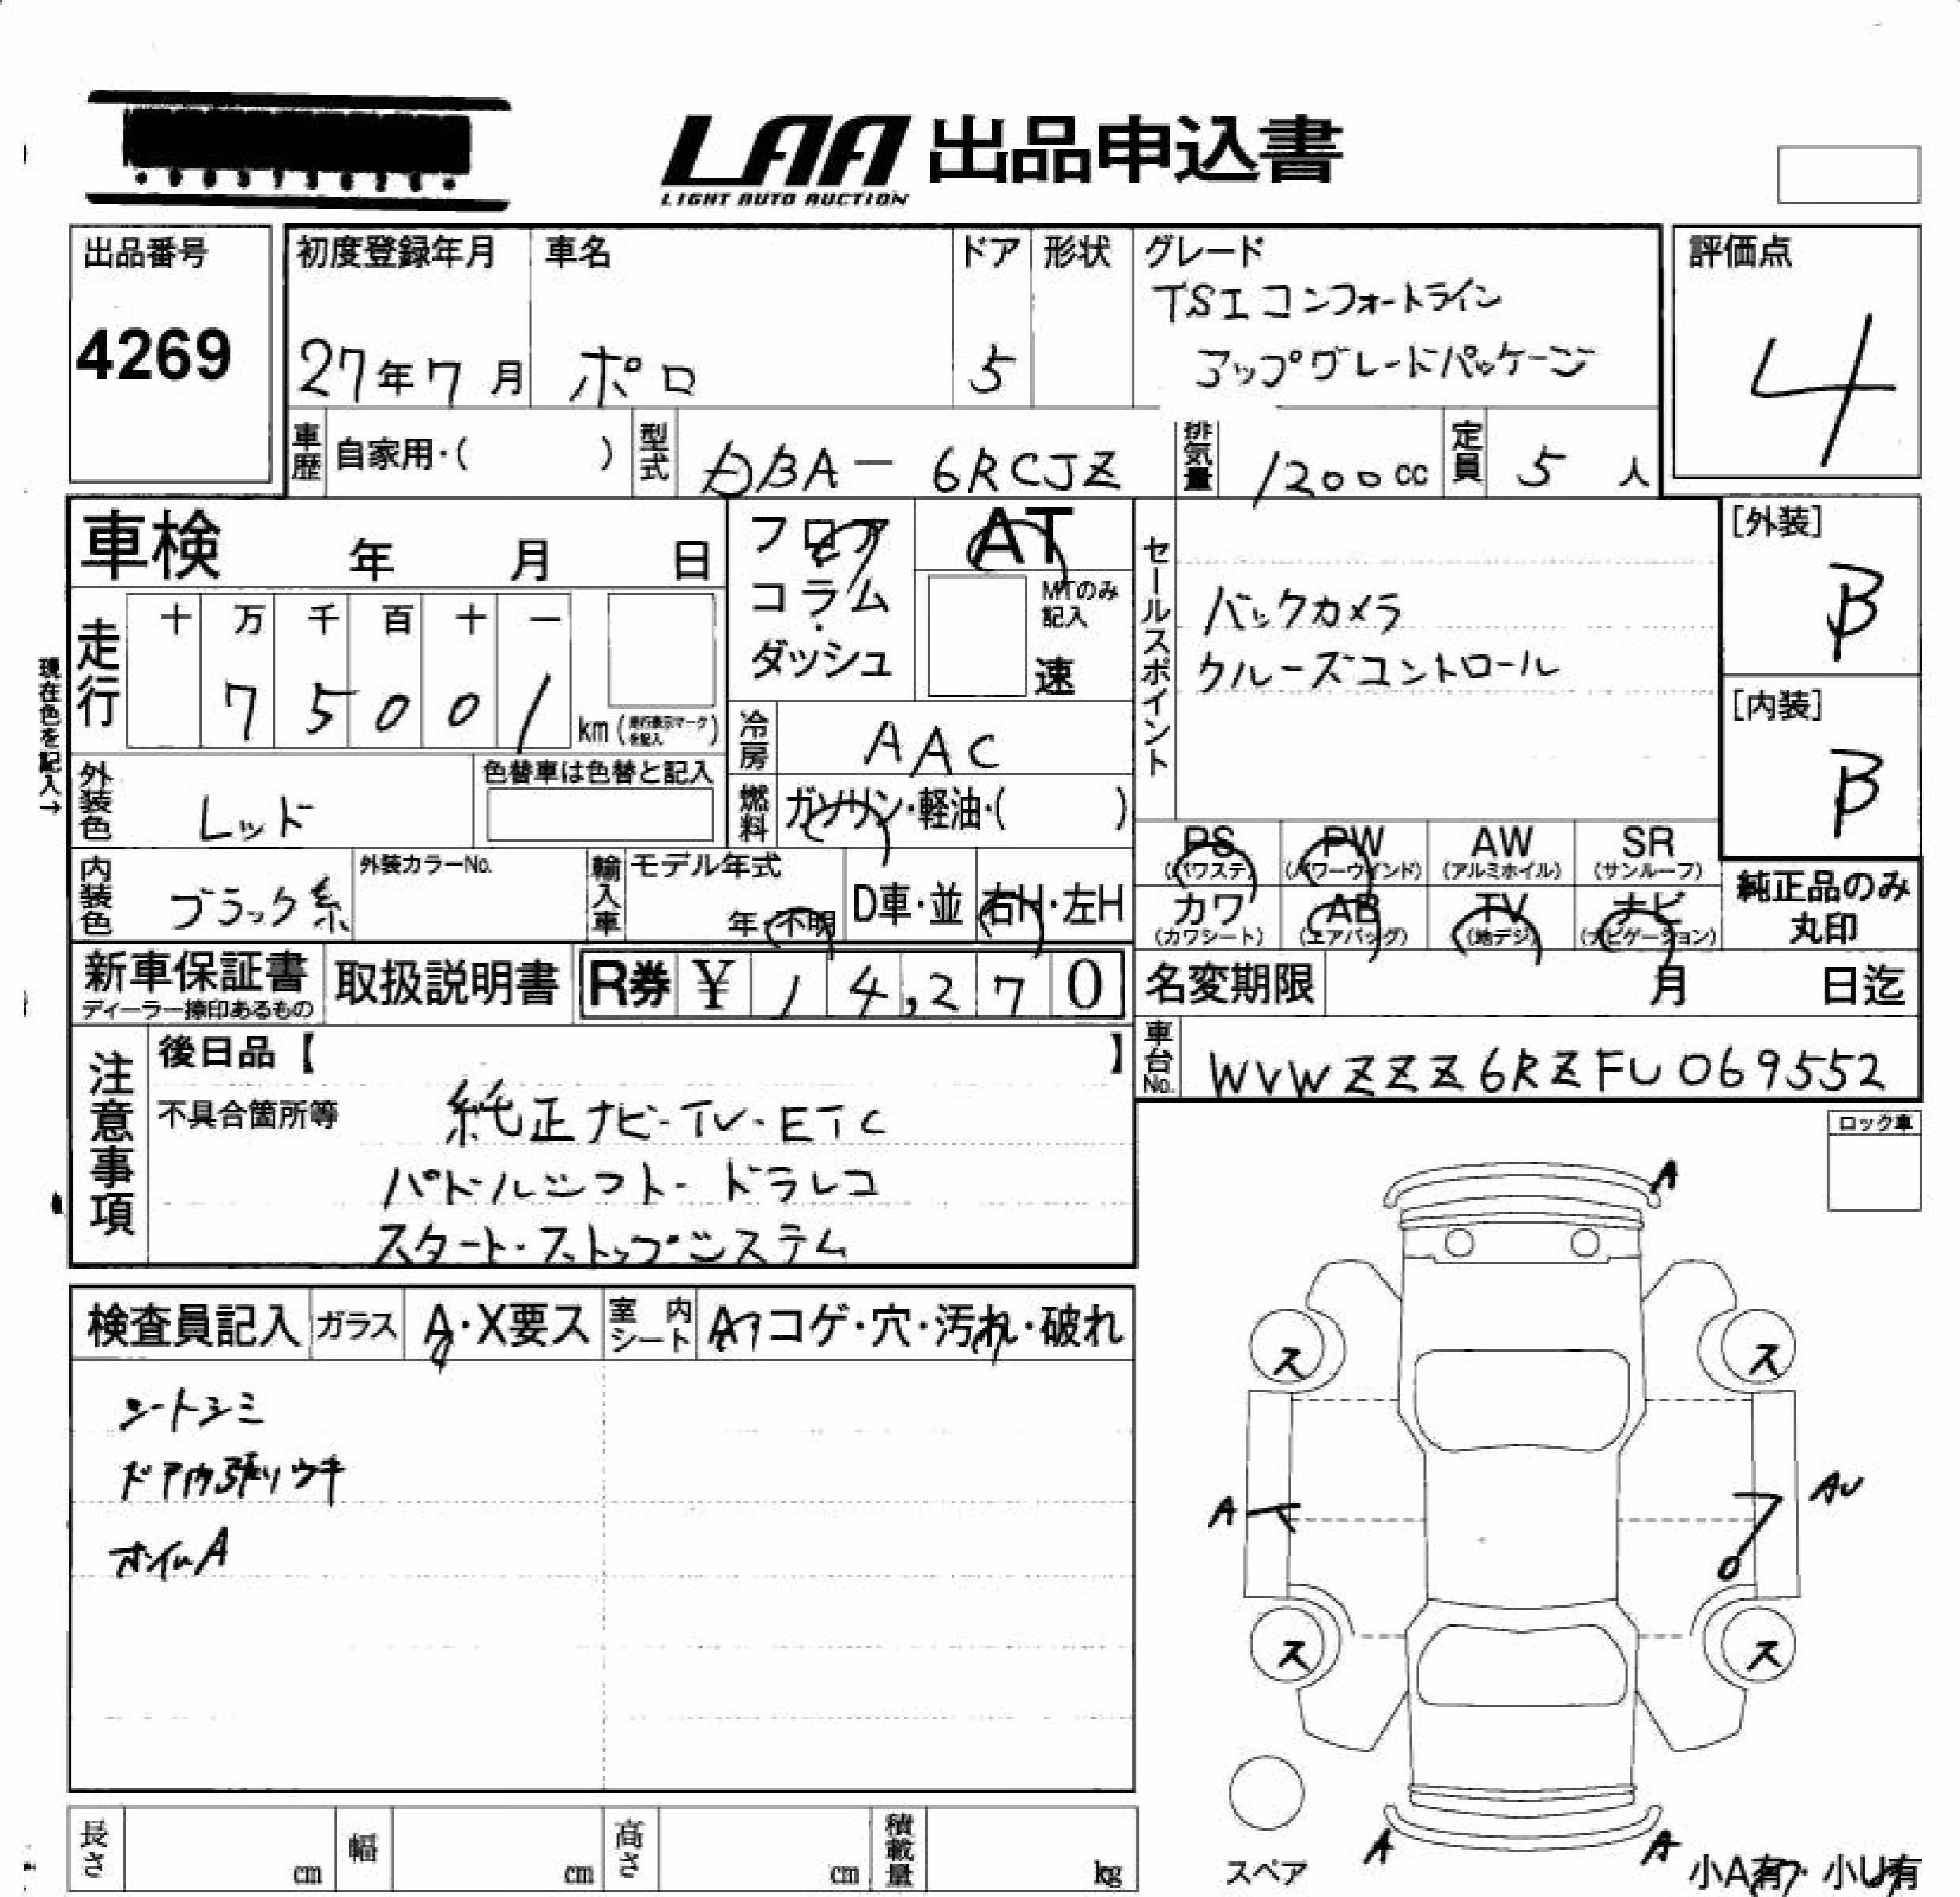 LAA 出品申込書
LIGHT AUTO AUCTION
出品番号
4269
初度登録年月
27年7月
車名
ポロ
ドア
5
形状
グレード
TSI コンフォートライン
アップグレードパッケージ
評価点
4
車歴
自家用・( )
型式
DBA-6RCJZ
排気量
1200cc
定員
5人
車検 年 月 日
フロア
コラム・
ダッシュ
AT
MTのみ
記入
速
セールスポイント
バックカメラ
クルーズコントロール
[外装]
B
[内装]
B
現在色を記入→
走行
十 万 千 百 十 一
7 5 0 0 1
km(走行表示マークを記入)
冷房
AAC
外装色
レッド
色替車は色替と記入
燃料
ガソリン・軽油・( )
PS
(パワステ)
PW
(パワーウインド)
AW
(アルミホイル)
SR
(サンルーフ)
カワ
(カワシート)
AB
(エアバッグ)
TV
(地デジ)
ナビ
(ナビゲーション)
純正品のみ
丸印
内装色
ブラック系
外装カラーNo.
輸入車
モデル年式
年・不明
D車・並
右H・左H
新車保証書
ディーラー捺印あるもの
取扱説明書
R券 ¥ 1 4,2 7 0
名変期限 月 日迄
車台No.
WVWZZZ6RZFU069552
注意事項
後日品【 】
不具合箇所等
純正ナビ-TV-ETC
パドルシフト-ドラレコ
スタート・ストップシステム
ロック車
検査員記入
ガラス
A・X要ス
室内
シート
コゲ・穴・汚れ・破れ
シートシミ
ドア内張りウキ
ホイルA
A
ス ス
A
AU
ス ス
スペア
A A
小A有・小U有
長さ cm
幅 cm
高さ cm
積載量 kg